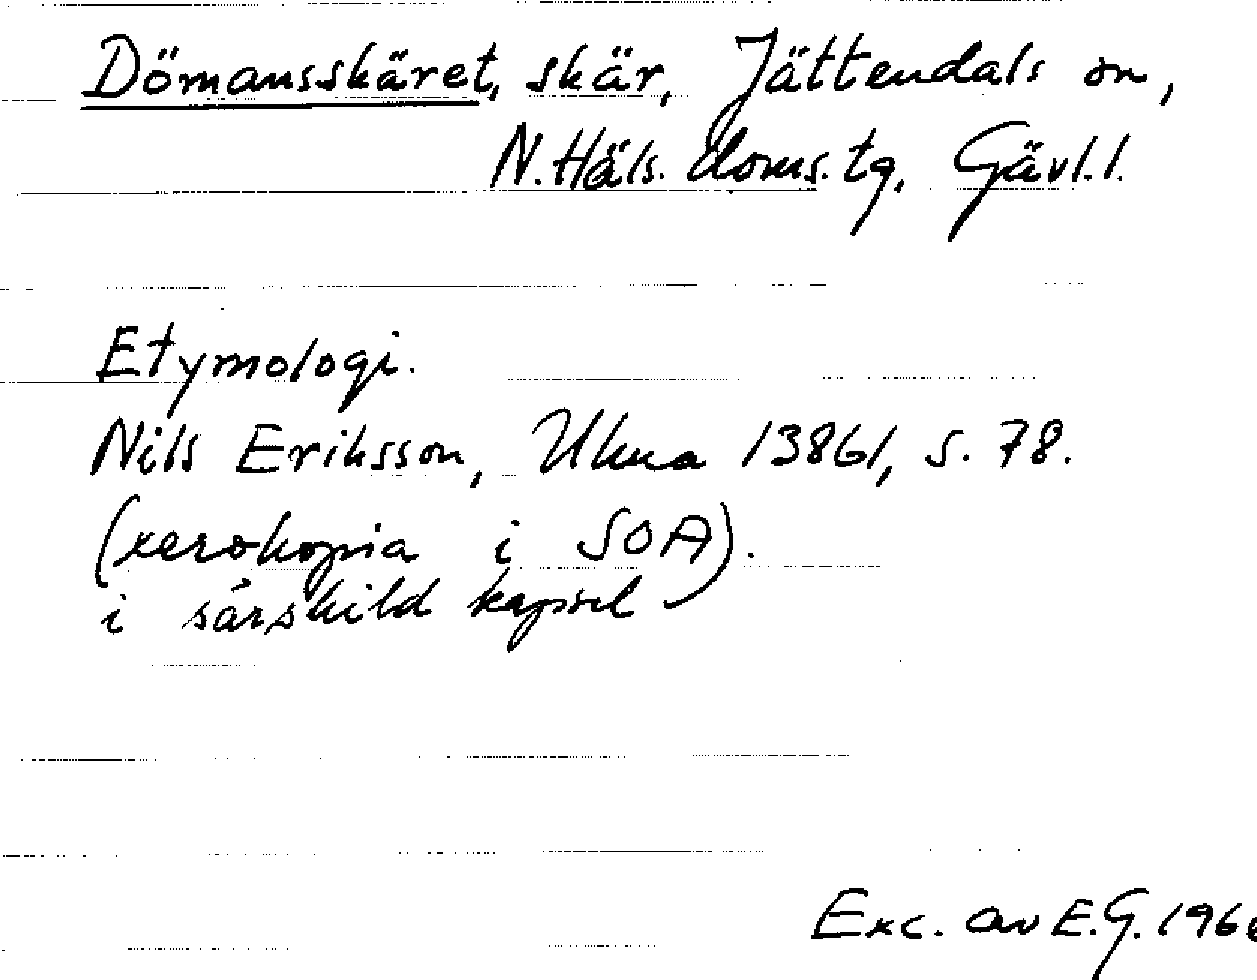 Dömansskäret, skär, Jättendals sn,
N. Häls. doms. tg. Gävl. l.
Etymologi.
Nils Eriksson, Ukna 13861, s. 78.
(xerokopia i SOA).
i särskild kapsel
Exc. av E.G. 196